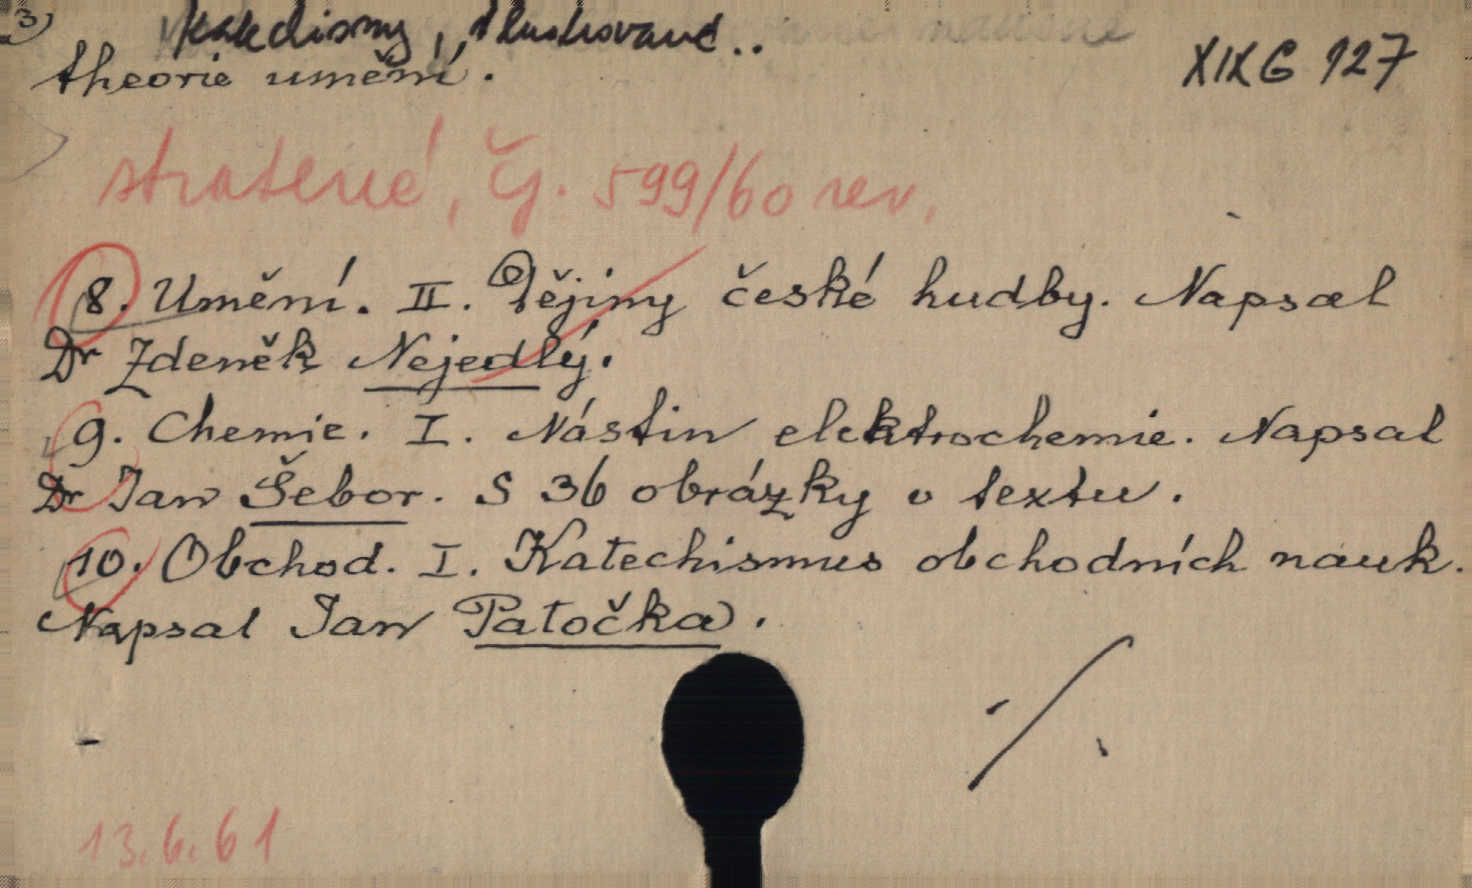 3)
Katechismy, illustrované..
theorie umění.
XIX G 127
stratené, čj. 599/60 rev.
8. Umění. II. Dějiny české hudby. Napsal
Dr Zdeněk Nejedlý.
9. Chemie. I. Nástin elektrochemie. Napsal
Dr Jan Šebor. S 36 obrázky v textu.
10. Obchod. I. Katechismus obchodních nauk.
Napsal Jan Patočka.
./.
13.6.61